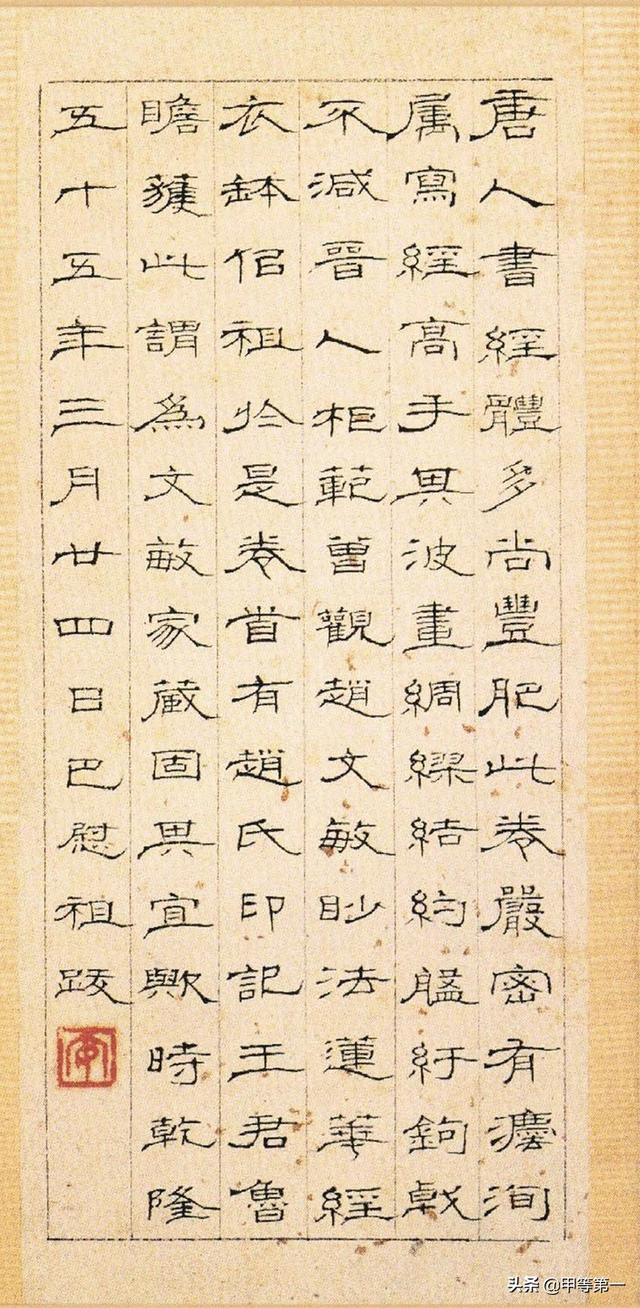 唐人書經體多尚豐肥此卷嚴密有灋洵
属寫經高手其波畫綢繆結約紆鉤戟
不減晉人柜範曾觀趙文敏眇法蓮華經
衣缽佀祖於是卷首有趙氏印記王君魯
瞻獲此謂為文敏家藏固其宜歟時乾隆
五十五年三月廿四日巴慰祖跋
头条 @甲等第一